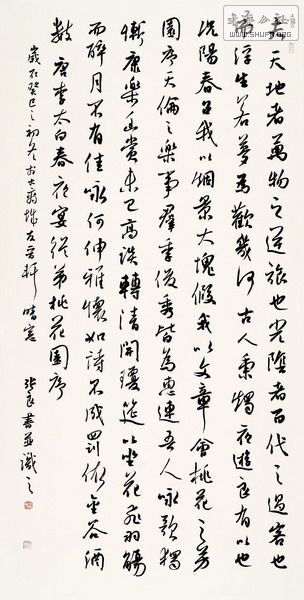 夫天地者萬物之逆旅也光陰者百代之過客也
而浮生若夢為歡幾何古人秉燭夜遊良有以也
況陽春召我以煙景大塊假我以文章會桃花之芳
園序天倫之樂事群季俊秀皆為惠連吾人詠歌獨
慚康樂幽賞未已高談轉清開瓊筵以坐花飛羽觴
而醉月不有佳詠何伸雅懷如詩不成罰依金谷酒
數 唐李太白春夜宴從弟桃花園序
歲在癸巳之初冬於古彭城 軒晴窗 張良書並識之